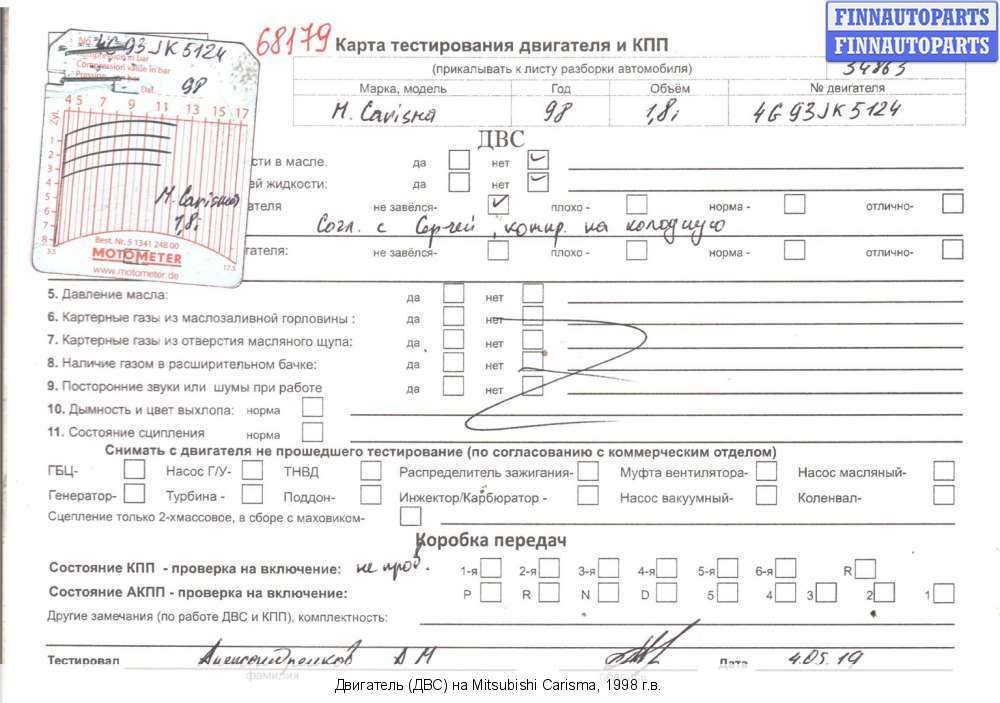 FINNAUTOPARTS
FINNAUTOPARTS
68179
Карта тестирования двигателя и КПП
(прикалывать к листу разборки автомобиля)
34863
Марка, модель Год Объём № двигателя
M. Carisma 98 1,8i 4G93JK5124
4G93JK5124
Compression in bar
Compression value in bar
Pression en bar
Dat. 98
4 5 7 9 11 13 15 17
Zyl.
1
2
3
4
5
6
7
8
M. Carisma
1,8i
3.5 17.5
Best. Nr. 5 1341 248 00
MOTOMETER
www.motometer.de
ДВС
сти в масле. да нет
ей жидкости: да нет
ателя не завёлся- плохо - норма - отлично-
Согл. с Сергей, компр. на холодную
гателя: не завёлся- плохо - норма - отлично-
5. Давление масла: да нет
6. Картерные газы из маслозаливной горловины : да нет
7. Картерные газы из отверстия масляного щупа: да нет
8. Наличие газом в расширительном бачке: да нет
9. Посторонние звуки или шумы при работе да нет
10. Дымность и цвет выхлопа: норма
11. Состояние сципления норма
Снимать с двигателя не прошедшего тестирование (по согласованию с коммерческим отделом)
ГБЦ- Насос Г/У- ТНВД Распределитель зажигания- Муфта вентилятора- Насос масляный-
Генератор- Турбина - Поддон- Инжектор/Карбюратор - Насос вакуумный- Коленвал-
Сцепление только 2-хмассовое, в сборе с маховиком-
Коробка передач
Состояние КПП - проверка на включение: не пров. 1-я 2-я 3-я 4-я 5-я 6-я R
Состояние АКПП - проверка на включение: P R N D 5 4 3 2 1
Другие замечания (по работе ДВС и КПП), комплектность:
Тестировал А М Дата 4.05.19
фамилия
Двигатель (ДВС) на Mitsubishi Carisma, 1998 г.в.